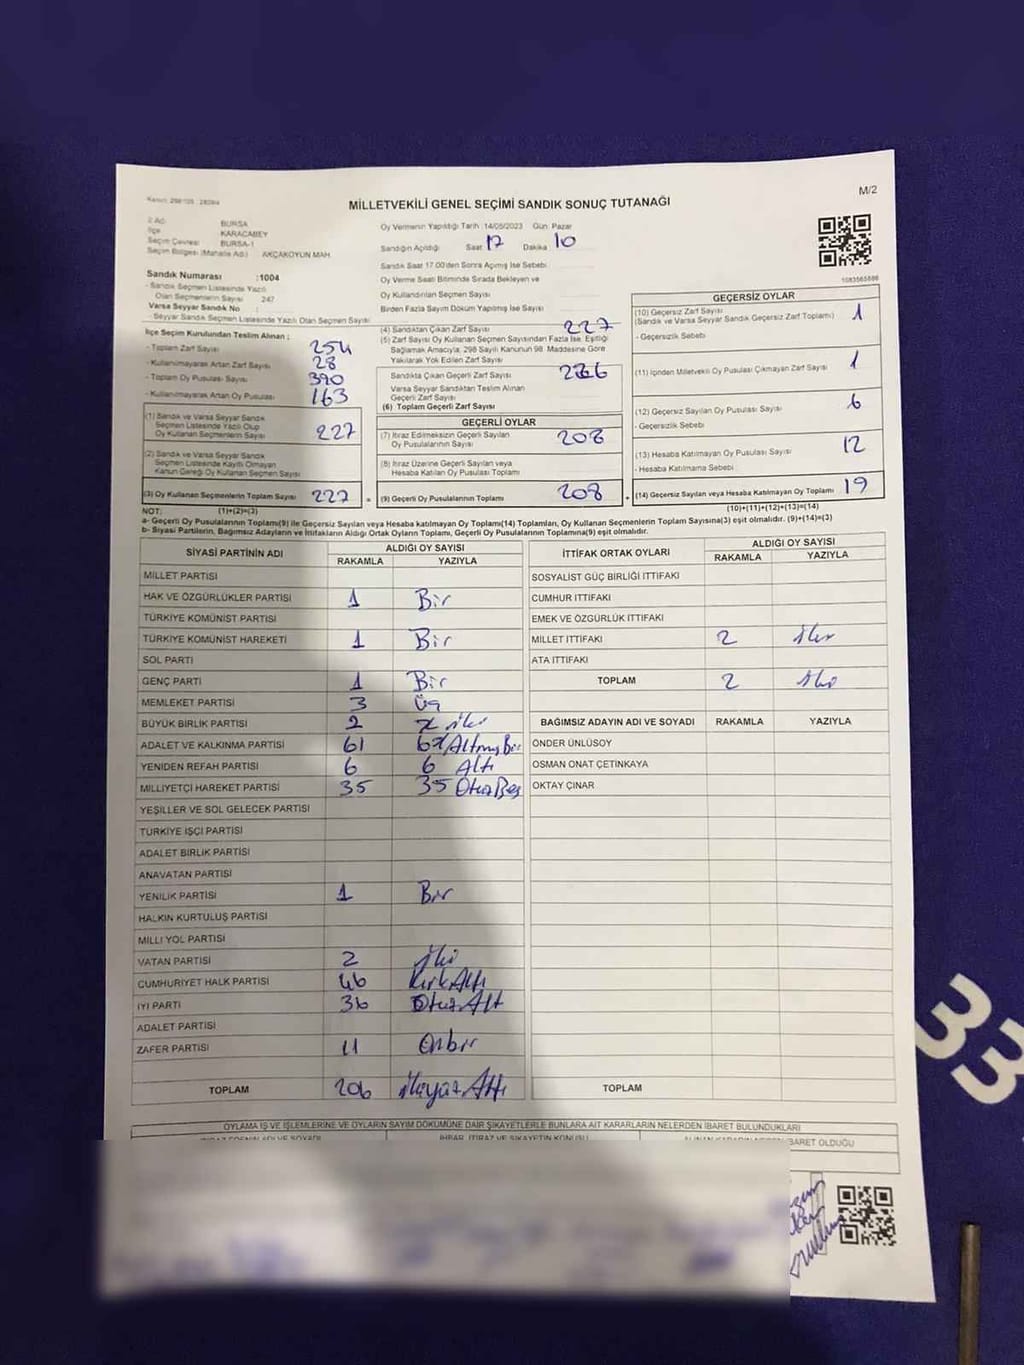 M/2
MİLLETVEKİLİ GENEL SEÇİMİ SANDIK SONUÇ TUTANAĞI
İl Adı BURSA
İlçe KARACABEY
Seçim Çevresi BURSA-1
Seçim Bölgesi (Mahalle Adı) AKÇAKOYUN MAH.
Sandık Numarası :1004
- Sandık Seçmen Listesinde Yazılı
Olan Seçmenlerin Sayısı 247
Varsa Seyyar Sandık No :
- Seyyar Sandık Seçmen Listesinde Yazılı Olan Seçmen Sayısı
Oy Vermenin Yapıldığı Tarih :14/05/2023 Gün: Pazar
Sandığın Açıldığı Saat 17 Dakika 10
Sandık Saat 17.00'den Sonra Açılmış İse Sebebi
Oy Verme Saati Bitiminde Sırada Bekleyen ve
Oy Kullandırılan Seçmen Sayısı
Birden Fazla Sayım Döküm Yapılmış İse Sayısı
1083565886
İlçe Seçim Kurulundan Teslim Alınan :
- Toplam Zarf Sayısı 254
- Kullanılmayarak Artan Zarf Sayısı 28
- Toplam Oy Pusulası Sayısı 390
- Kullanılmayarak Artan Oy Pusulası 163
(1) Sandık ve Varsa Seyyar Sandık
Seçmen Listesinde Yazılı Olup
Oy Kullanan Seçmenlerin Sayısı 227
(2) Sandık ve Varsa Seyyar Sandık
Seçmen Listesinde Kayıtlı Olmayan
Kanun Gereği Oy Kullanan Seçmen Sayısı
(3) Oy Kullanan Seçmenlerin Toplam Sayısı 227 =
(4) Sandıktan Çıkan Zarf Sayısı 227
(5) Zarf Sayısı Oy Kullanan Seçmen Sayısından Fazla İse, Eşitliği
Sağlamak Amacıyla, 298 Sayılı Kanunun 98. Maddesine Göre
Yakılarak Yok Edilen Zarf Sayısı
Sandıkta Çıkan Geçerli Zarf Sayısı 226
Varsa Seyyar Sandıktan Teslim Alınan
Geçerli Zarf Sayısı
(6) Toplam Geçerli Zarf Sayısı
GEÇERLİ OYLAR
(7) İtiraz Edilmeksizin Geçerli Sayılan
Oy Pusulalarının Sayısı 208
(8) İtiraz Üzerine Geçerli Sayılan veya
Hesaba Katılan Oy Pusulası Toplamı
(9) Geçerli Oy Pusulalarının Toplamı 208
GEÇERSİZ OYLAR
(10) Geçersiz Zarf Sayısı 1
(Sandık ve Varsa Seyyar Sandık Geçersiz Zarf Toplamı)
- Geçersizlik Sebebi
(11) İçinden Milletvekili Oy Pusulası Çıkmayan Zarf Sayısı 1
(12) Geçersiz Sayılan Oy Pusulası Sayısı 6
- Geçersizlik Sebebi
(13) Hesaba Katılmayan Oy Pusulası Sayısı 12
- Hesaba Katılmama Sebebi
(14) Geçersiz Sayılan veya Hesaba Katılmayan Oy Pusulası Toplamı 19
NOT: (1)+(2)=(3) (10)+(11)+(12)+(13)=(14)
a- Geçerli Oy Pusulalarının Toplamı(9) ile Geçersiz Sayılan veya Hesaba katılmayan Oy Toplamı(14) Toplamları, Oy Kullanan Seçmenlerin Toplam Sayısına(3) eşit olmalıdır. (9)+(14)=(3)
b- Siyasi Partilerin, Bağımsız Adayların ve İttifakların Aldığı Ortak Oyların Toplamı, Geçerli Oy Pusulalarının Toplamına(9) eşit olmalıdır.
SİYASİ PARTİNİN ADI ALDIĞI OY SAYISI
RAKAMLA YAZIYLA
MİLLET PARTİSİ
HAK VE ÖZGÜRLÜKLER PARTİSİ 1 Bir
TÜRKİYE KOMÜNİST PARTİSİ
TÜRKİYE KOMÜNİST HAREKETİ 1 Bir
SOL PARTİ
GENÇ PARTİ 1 Bir
MEMLEKET PARTİSİ 3 Üç
BÜYÜK BİRLİK PARTİSİ 2 iki
ADALET VE KALKINMA PARTİSİ 61 Altmış Bir
YENİDEN REFAH PARTİSİ 6 6 Altı
MİLLİYETÇİ HAREKET PARTİSİ 35 35 Otuz Beş
YEŞİLLER VE SOL GELECEK PARTİSİ
TÜRKİYE İŞÇİ PARTİSİ
ADALET BİRLİK PARTİSİ
ANAVATAN PARTİSİ
YENİLİK PARTİSİ 1 Bir
HALKIN KURTULUŞ PARTİSİ
MİLLİ YOL PARTİSİ
VATAN PARTİSİ 2 iki
CUMHURİYET HALK PARTİSİ 46 Kırk Altı
İYİ PARTİ 36 Otuz Alt
ADALET PARTİSİ
ZAFER PARTİSİ 11 Onbir
TOPLAM 206 ikiyüz Altı
İTTİFAK ORTAK OYLARI ALDIĞI OY SAYISI
RAKAMLA YAZIYLA
SOSYALİST GÜÇ BİRLİĞİ İTTİFAKI
CUMHUR İTTİFAKI
EMEK VE ÖZGÜRLÜK İTTİFAKI
MİLLET İTTİFAKI 2 iki
ATA İTTİFAKI
TOPLAM 2 iki
BAĞIMSIZ ADAYIN ADI VE SOYADI RAKAMLA YAZIYLA
ÖNDER ÜNLÜSOY
OSMAN ONAT ÇETİNKAYA
OKTAY ÇINAR
TOPLAM
OYLAMA İŞ VE İŞLEMLERİNE VE OYLARIN SAYIM DÖKÜMÜNE DAİR ŞİKAYETLERLE BUNLARA AİT KARARLARIN NELERDEN İBARET BULUNDUKLARI
İBARET OLDUĞU
33